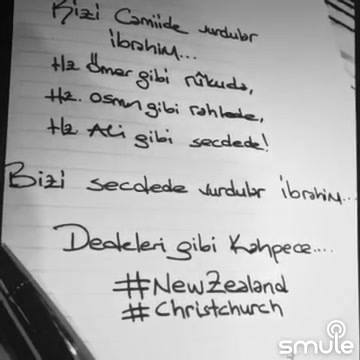 Bizi Camiide vurdular
İbrahim...
Hz Ömer gibi rükuda,
Hz. Osman gibi rahlede,
Hz Ali gibi secdede!
Bizi secdede vurdular İbrahim...
Dedeleri gibi Kahpece....
#NewZealand
#Christchurch
smule